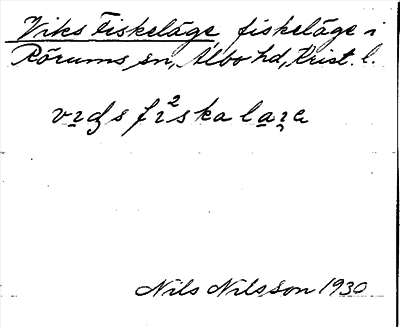 Viks Fiskeläge, fiskeläge i
Rörums sn, Albo hd, Krist. l.
fɪ²skalaʒa
Nils Nilsson 1930